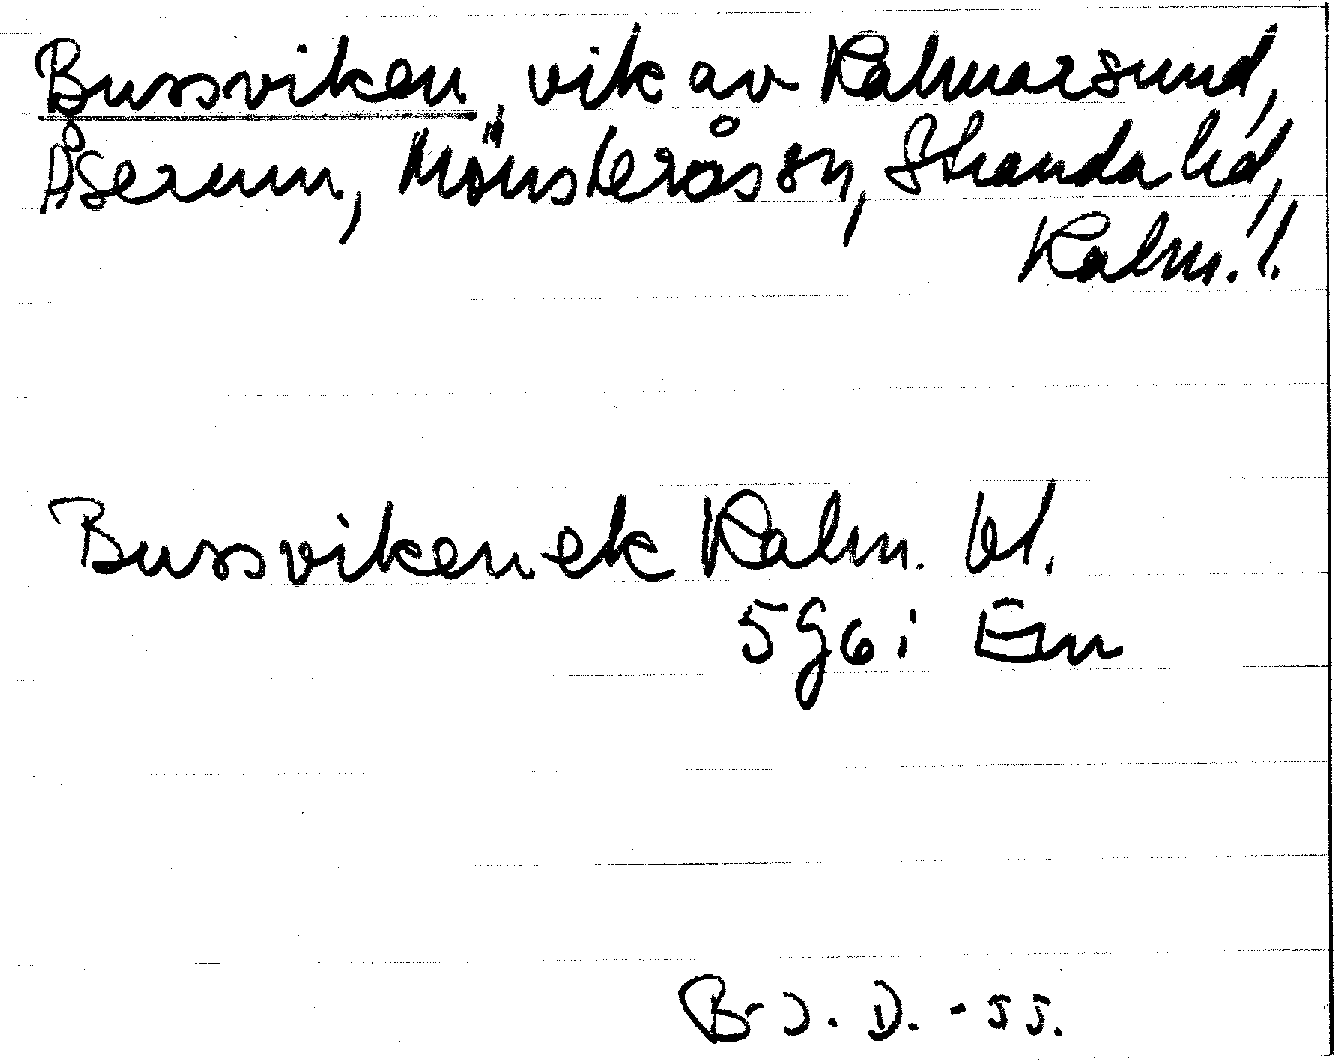 Bussviken, vik av Kalmarsund,
Åserum, Mönsterås sn, Stranda hd,
Kalm. l.
Bussviken ek Kalm. bl.
5 G 6 i Em
Br J. D. -55.